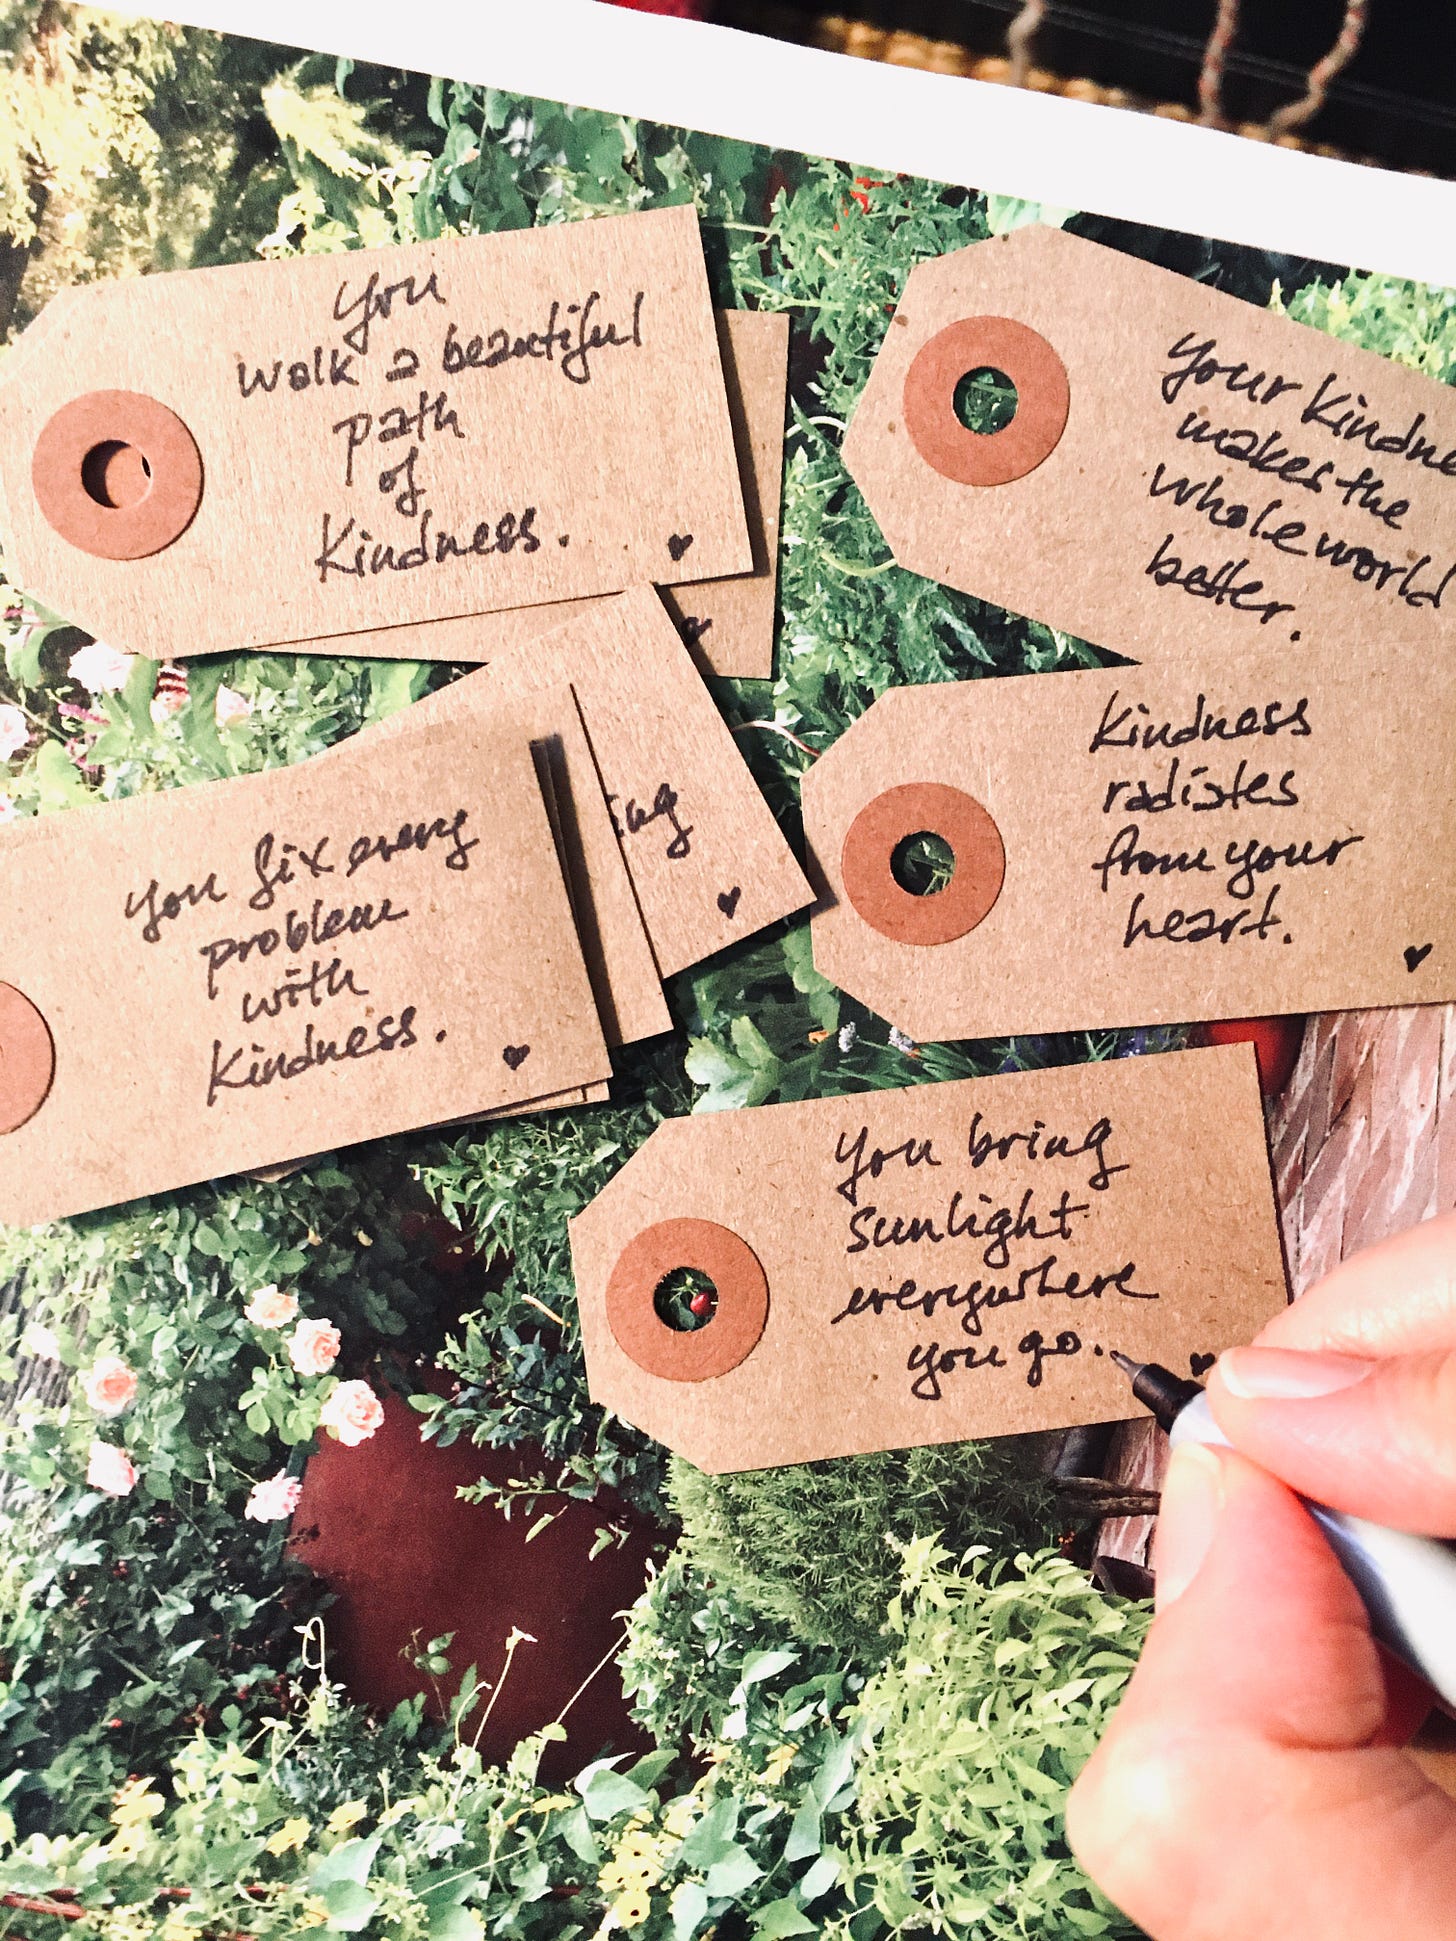 You
walk a beautiful
path
of
Kindness.
Your Kindne
makes the
whole world
better.
Kindness
radiates
from your
heart.
ing
You fix every
problem
with
Kindness.
You bring
sunlight
everywhere
you go.